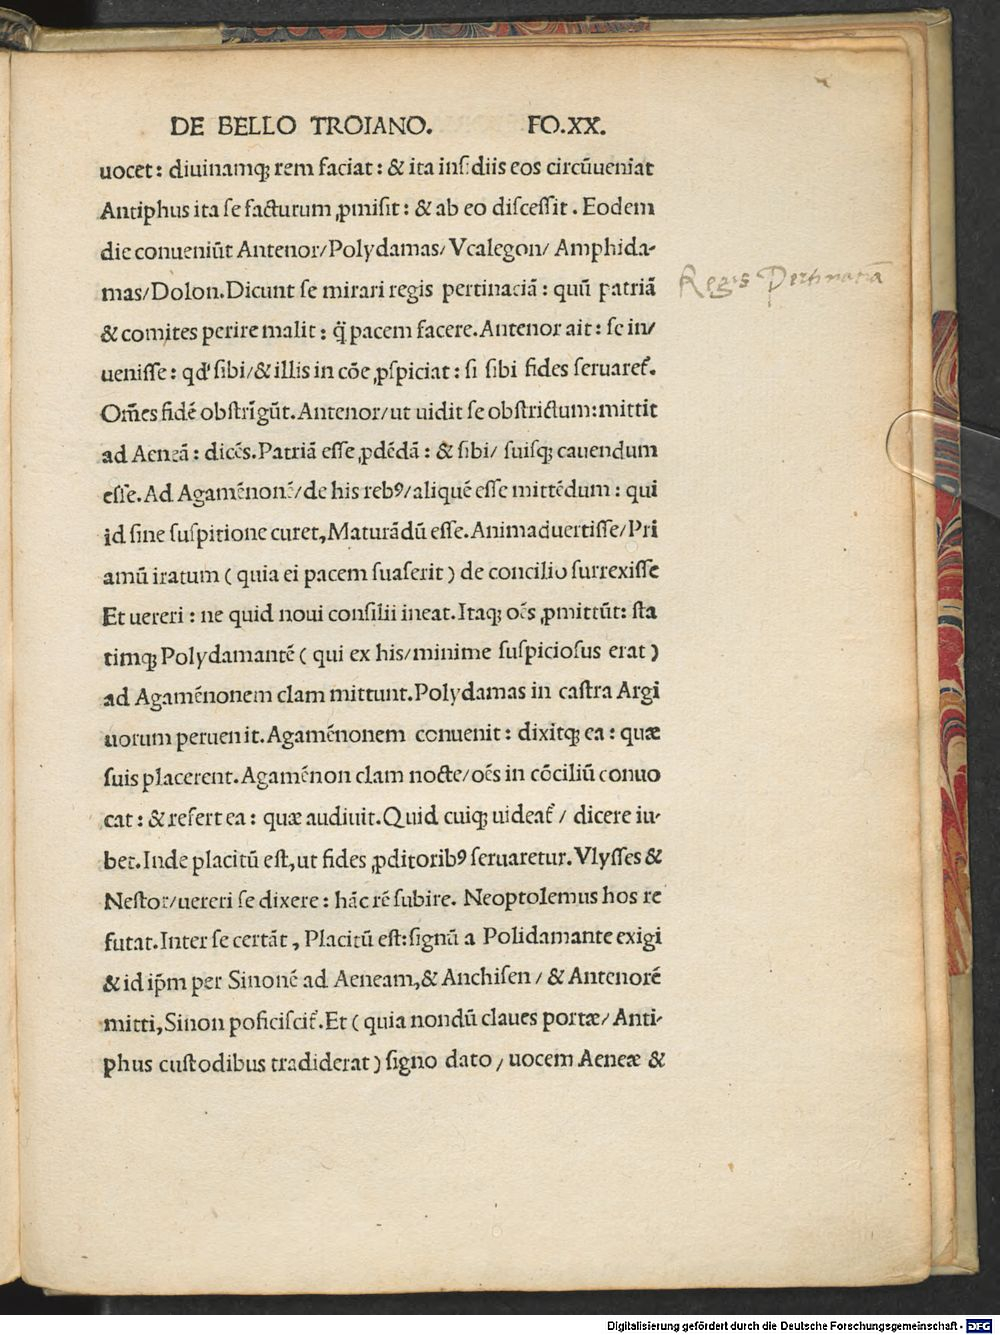 DE BELLO TROIANO. FO.XX.
uocet: diuinamq; rem faciat: & ita insidiis eos circūueniat
Antiphus ita se facturum ꝓmisit: & ab eo discessit. Eodem
die conueniūt Antenor/Polydamas/Vcalegon/ Amphida-
mas/Dolon.Dicunt se mirari regis pertinaciā: quū patriā
& comites perire malit: q̃ pacem facere.Antenor ait: se in/
uenisse: qd' sibi/& illis in cōe ꝓspiciat: si sibi fides seruaret᷑.
Om̄es fidē obstrīgūt.Antenor/ut uidit se obstrictum:mittit
ad Aeneā: dicēs.Patriā esse ꝓdēdā: & sibi/ suisq; cauendum
esse.Ad Agamēnonē/de his rebꝰ/aliquē esse mittēdum: qui
id sine suspitione curet,Maturādū esse.Animaduertisse/Pri
amū iratum (quia ei pacem suaserit) de concilio surrexisse
Et uereri: ne quid noui consilii ineat.Itaq; oēs ꝓmittūt: sta
timq; Polydamantē (qui ex his/minime suspiciosus erat)
ad Agamēnonem clam mittunt.Polydamas in castra Argi
uorum peruenit.Agamēnonem conuenit: dixitq; ea: quæ
suis placerent.Agamēnon clam nocte/oēs in cōciliū conuo
cat: & refert ea: quæ audiuit.Quid cuiq; uideat᷑/ dicere iu-
bet.Inde placitū est,ut fides ꝓditoribꝰ seruaretur.Vlysses &
Nestor/uereri se dixere: hāc rē subire. Neoptolemus hos re
futat.Inter se certāt, Placitū est:signū a Polidamante exigi
& id ip̄m per Sinonē ad Aeneam,& Anchisen/ & Antenorē
mitti,Sinon poficiscit᷑.Et (quia nondū claues portæ/Anti-
phus custodibus tradiderat) signo dato/uocem Aeneæ &
Regis Pertinatia
Digitalisierung gefördert durch die Deutsche Forschungsgemeinschaft - DFG